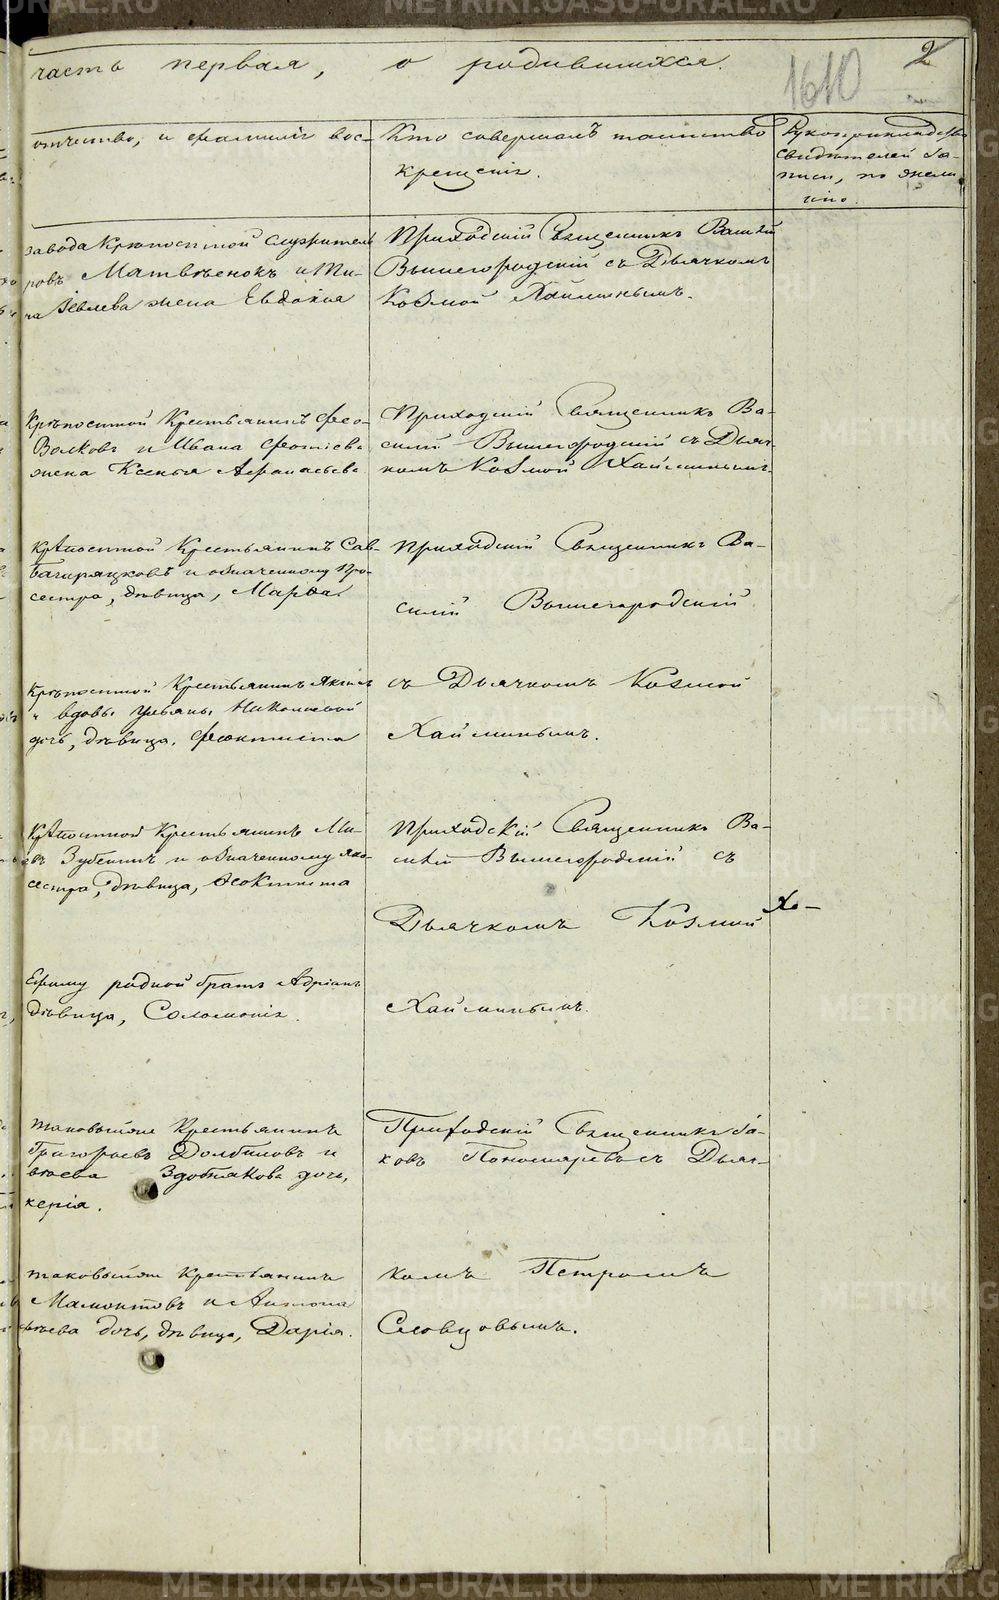 часть первая, о родившихся.
2
1610
отчество, и фамилія вос-
Кто совершалъ таинство
крещенія.
Рукоприкладство
свидѣтелей за-
писи, по жела-
нію.
завода Крѣпостной служитель
ровъ Матвѣенокъ и Ти-
на Іевлева жена Евдокія
Приходскій Священникъ Василій
Вышегородскій съ Дьячкомъ
Козмой Хайминымъ.
Крѣпостной Крестьянинъ Фео-
Волковъ и Ивана Фотіева
жена Ксенья Афанасьева
Приходскій Священникъ Ва-
силій Вышегородскій съ Дьяч-
комъ Козмой Хайминымъ.
Крѣпостной Крестьянинъ Сав-
Багаряцковъ и означенному Про-
сестра, дѣвица, Марѳа.
Приходскій Священникъ Ва-
силій Вышегородскій
Крѣпостной Крестьянинъ
и вдовы Ульяны Николаевой
дочь, дѣвица, Феоктиста
съ Дьячкомъ Козмой
Хайминымъ.
Крѣпостной Крестьянинъ Ми-
Зубенинъ и означенному Яко-
сестра, дѣвица, Ѳеоктиста
Приходскій Священникъ Ва-
силій Вышегородскій съ
Дьячкомъ Козмой Ха-
Ефиму родной братъ Адріанъ
дѣвица, Соломонія.
Хайминымъ.
таковый же Крестьянинъ
Григорьевъ Долбиловъ и
Здобнякова дочь,
керія.
Приходскій Священникъ Іа-
ковъ Пономаревъ съ Дьяч-
таковый же Крестьянинъ
Мамонтовъ и Антона
дочь, дѣвица, Дарія.
комъ Петромъ
Словцовымъ.
METRIKI.GASO-URAL.RU